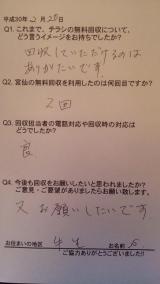 平成30年2月28日
Q1. これまで、チラシの無料回収について、
どう言うイメージをお持ちでしたか?
回収していただけるのは
ありがたいです.
Q2. 宮仙の無料回収を利用したのは何回目ですか?
2回
Q3. 回収担当者の電話対応や回収時の対応は
どうでしたか?
良
Q4. 今後も回収をお願いしたいと思われましたか?
ご意見・ご要望がありましたらお願い致します。
又お願いしたいです
お住まいの地区
お名前
ご協力ありがとうございました!!